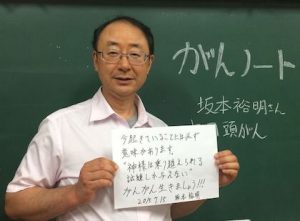 がんノート
坂本裕明さん
頭がん
今起きていることは必ず
意味があります。
"神様は乗り越えられる
試練しか与えない"
がんがん生きましょう!!!
2015.7.15 坂本裕明